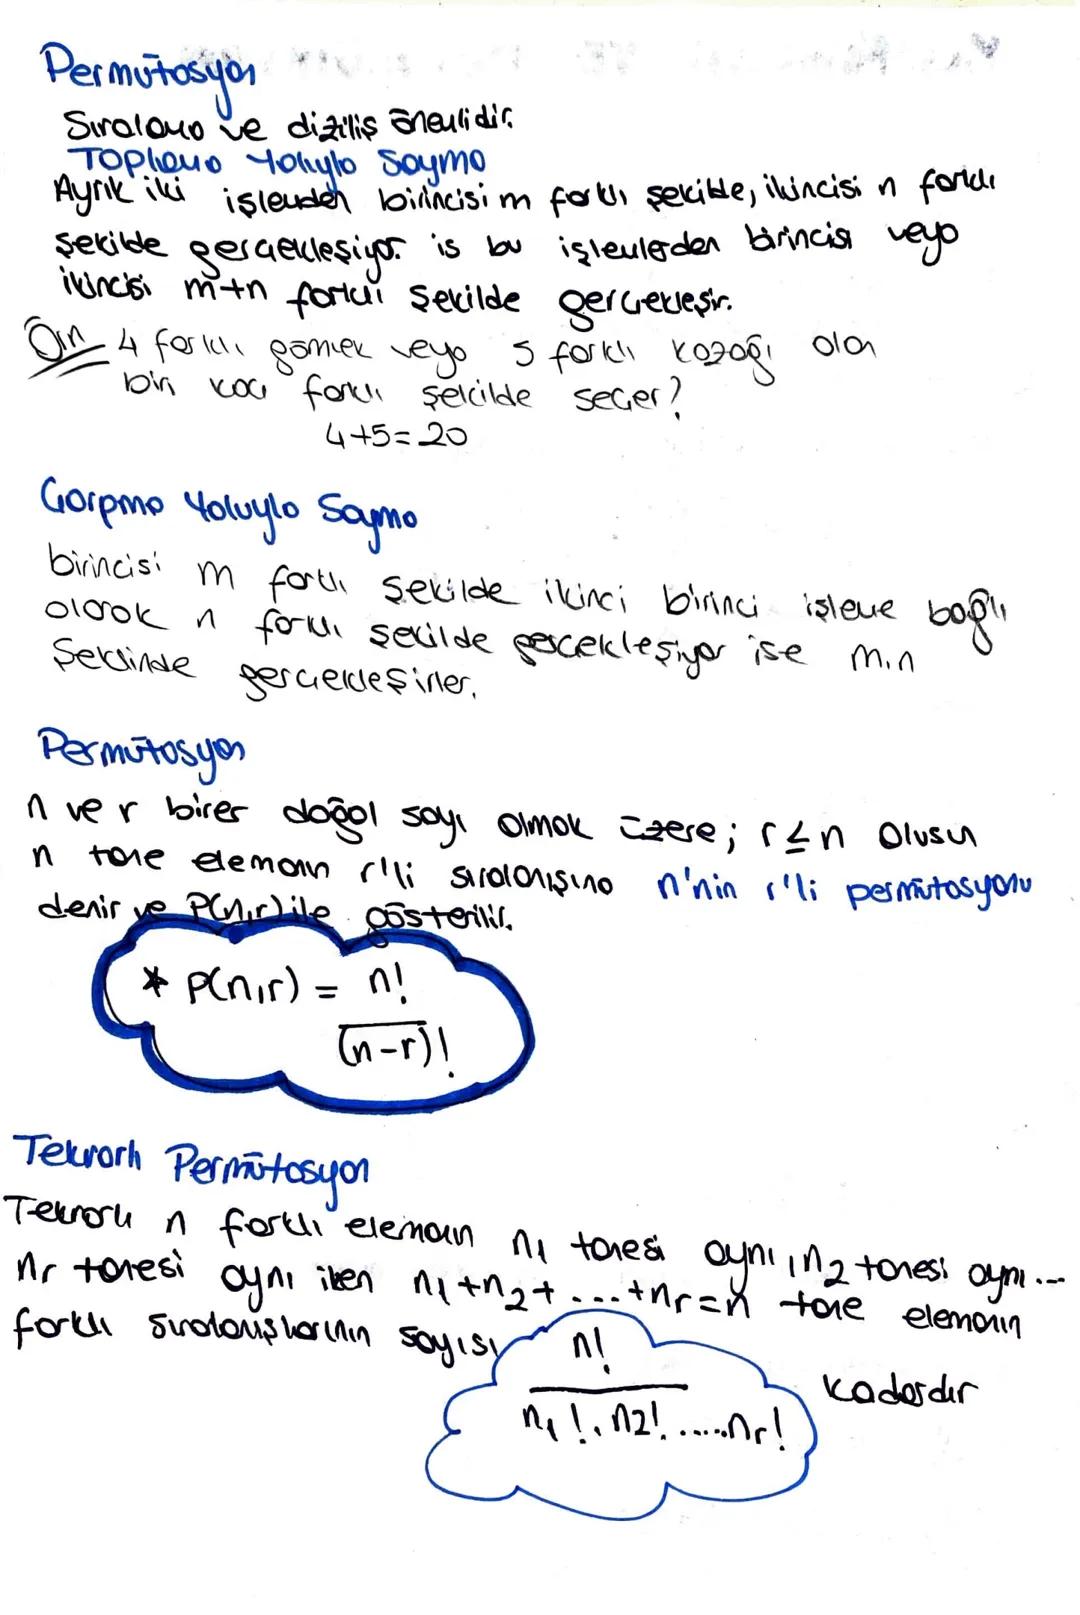 Permütasyon
Sıralama ve diziliş önemlidir.
TOPlama Yoluyla Sayma
Ayrık iki işlemden birincisi m farklı şekilde, ikincisi n farklı
şekilde gerçekleşiyor. is bu işlemlerden birincisi veya
ikincisi m+n farklı şekilde gerçekleşir.
Örn 4 farklı gömlek veya 5 farklı kazağı olan
biri kaç farklı şekilde seçer?
4+5=20
Çarpma Yoluyla Sayma
birincisi m farklı şekilde ikinci birinci işleme bağlı
olarak n farklı şekilde gerçekleşiyor ise m.n
Şeklinde gerçekleşirler.
Permütasyon
n ve r birer doğal sayı olmak üzere; r≤n Olusun
n tane elemanın r'li sıralanışına n'nin r'li permütasyonu
denir ve P(n,r) ile gösterilir.
* P(n,r) = n!
(n-r)!
Tekrarlı Permütasyon
Tekrarlı n farklı elemanın n₁ tanesi aynı, n₂ tanesi aynı...
nr tanesi aynı iken n₁+n₂+...+nr=n tane elemanın
farklı sıralanışlarının sayısı
n!
n₁!. n2!. .....nr!
kadardır